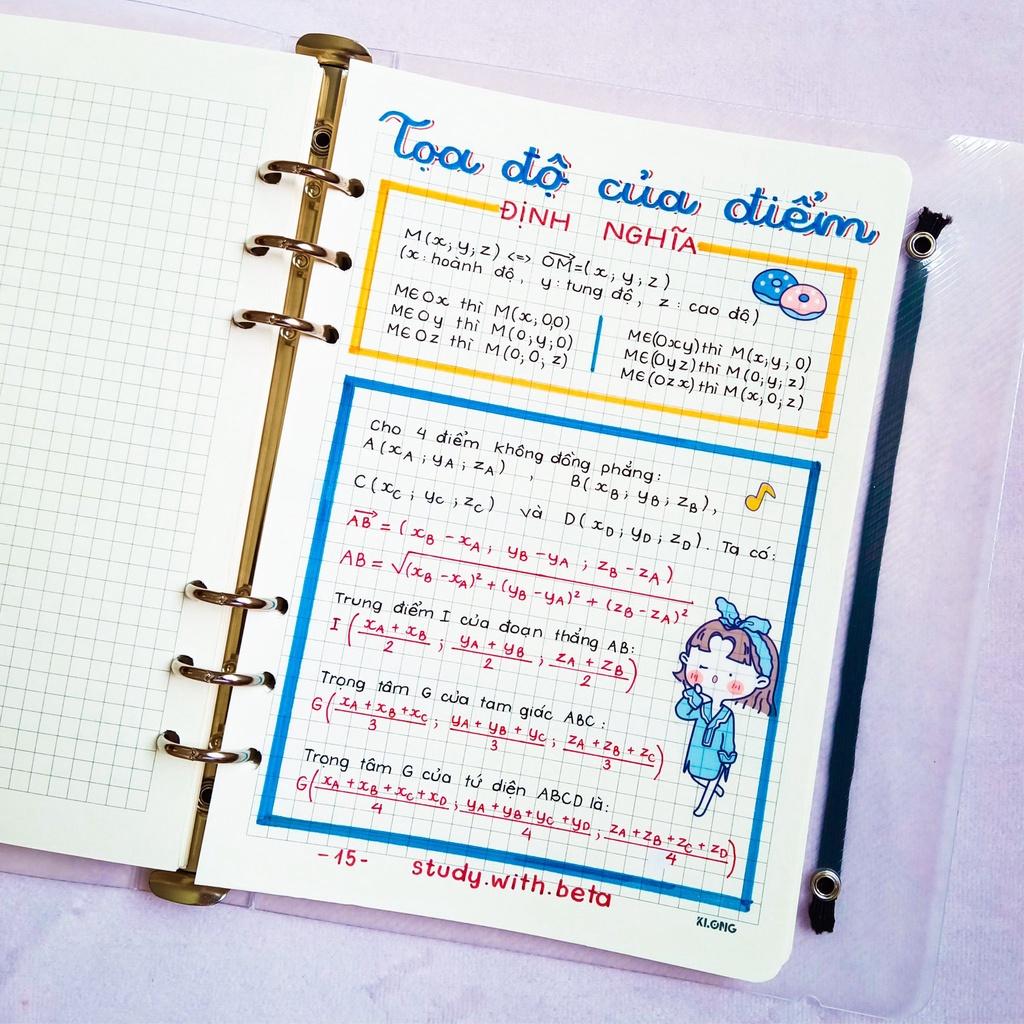 Tọa độ của điểm
ĐỊNH NGHĨA
M(x; y; z) <=> \overrightarrow{OM}=(x; y; z)
(x: hoành độ, y: tung độ, z: cao độ)
M∈Ox thì M(x; 0;0)
M∈Oy thì M(0; y; 0)
M∈Oz thì M(0; 0; z)
M∈(Oxy) thì M(x; y; 0)
M∈(Oyz) thì M(0; y; z)
M∈(Ozx) thì M(x; 0; z)
Cho 4 điểm không đồng phẳng:
A(x_A; y_A; z_A), B(x_B; y_B; z_B),
C(x_C; y_C; z_C) và D(x_D; y_D; z_D). Ta có:
\overrightarrow{AB} = (x_B - x_A; y_B - y_A; z_B - z_A)
AB = √((x_B - x_A)² + (y_B - y_A)² + (z_B - z_A)²)
Trung điểm I của đoạn thẳng AB:
I((x_A + x_B)/2; (y_A + y_B)/2; (z_A + z_B)/2)
Trọng tâm G của tam giác ABC:
G((x_A + x_B + x_C)/3; (y_A + y_B + y_C)/3; (z_A + z_B + z_C)/3)
Trọng tâm G của tứ diện ABCD là:
G((x_A + x_B + x_C + x_D)/4; (y_A + y_B + y_C + y_D)/4; (z_A + z_B + z_C + z_D)/4)
-15- study.with.beta
KLONG